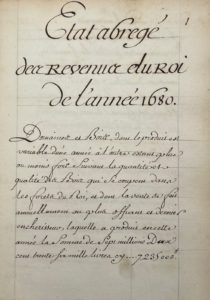 1
Etat abregé
des Revenus du Roi
de l'année 1680.
Domaines et Bois, dont le produit est
variable d'une année à l'autre estant plus
ou moins fort suivant la quantité et
qualité des Bois qui se coupent dans
les forests du Roi, et dont la vente se fait
annuellement au plus offrant et dernier
encherisseur, laquelle a produit en cette
année la Somme de Sept millions Deux
cens trente six mille livres cy....